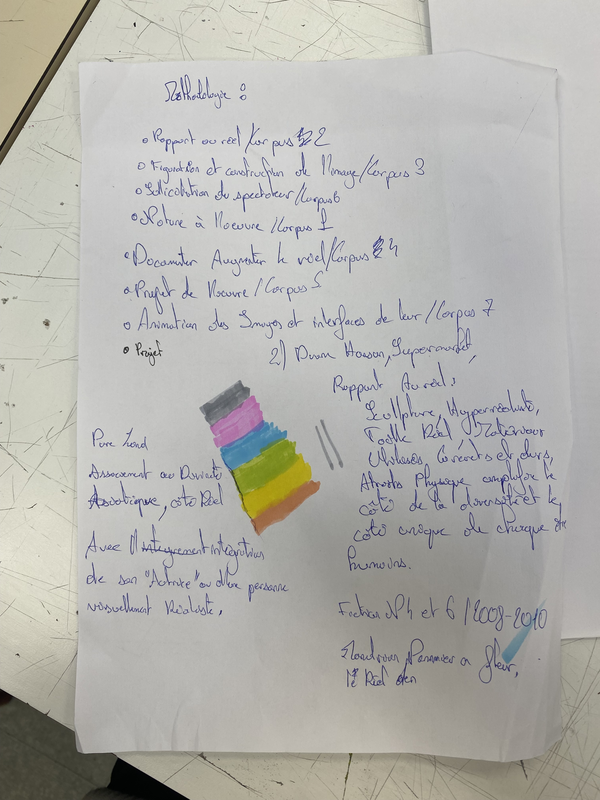 Méthodologie :
• Rapport au réel/Corpus 2
• Figuration et construction de l'image/Corpus 3
• Sollicitation du spectateur/Corpus 6
• Nature à l'oeuvre/Corpus 1
• Documenter Augmenter le réel/Corpus 4
• Projet de l'oeuvre/Corpus 5
• Animation des Images et interfaces de leur/Corpus 7
• Projet
2) Duan Hanson, Supermarket,
Rapport Au réel :
Sculpture, Hyperréaliste,
Taille Réel Matériaux
Utilisés Concrets et durs,
Physique amplifie le
côté de la diversité et le
côté unique de chaque être
humains.
Fiction N°4 et 6/2008-2010
a fleur,
Réel
Pure Land
au
côté Réel
Avec l'intégration
de son "Actrice" ou d'une personne
visuellement Réaliste,